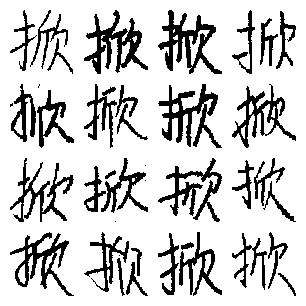 掀掀掀掀
掀掀掀掀
掀掀掀掀
掀掀掀掀